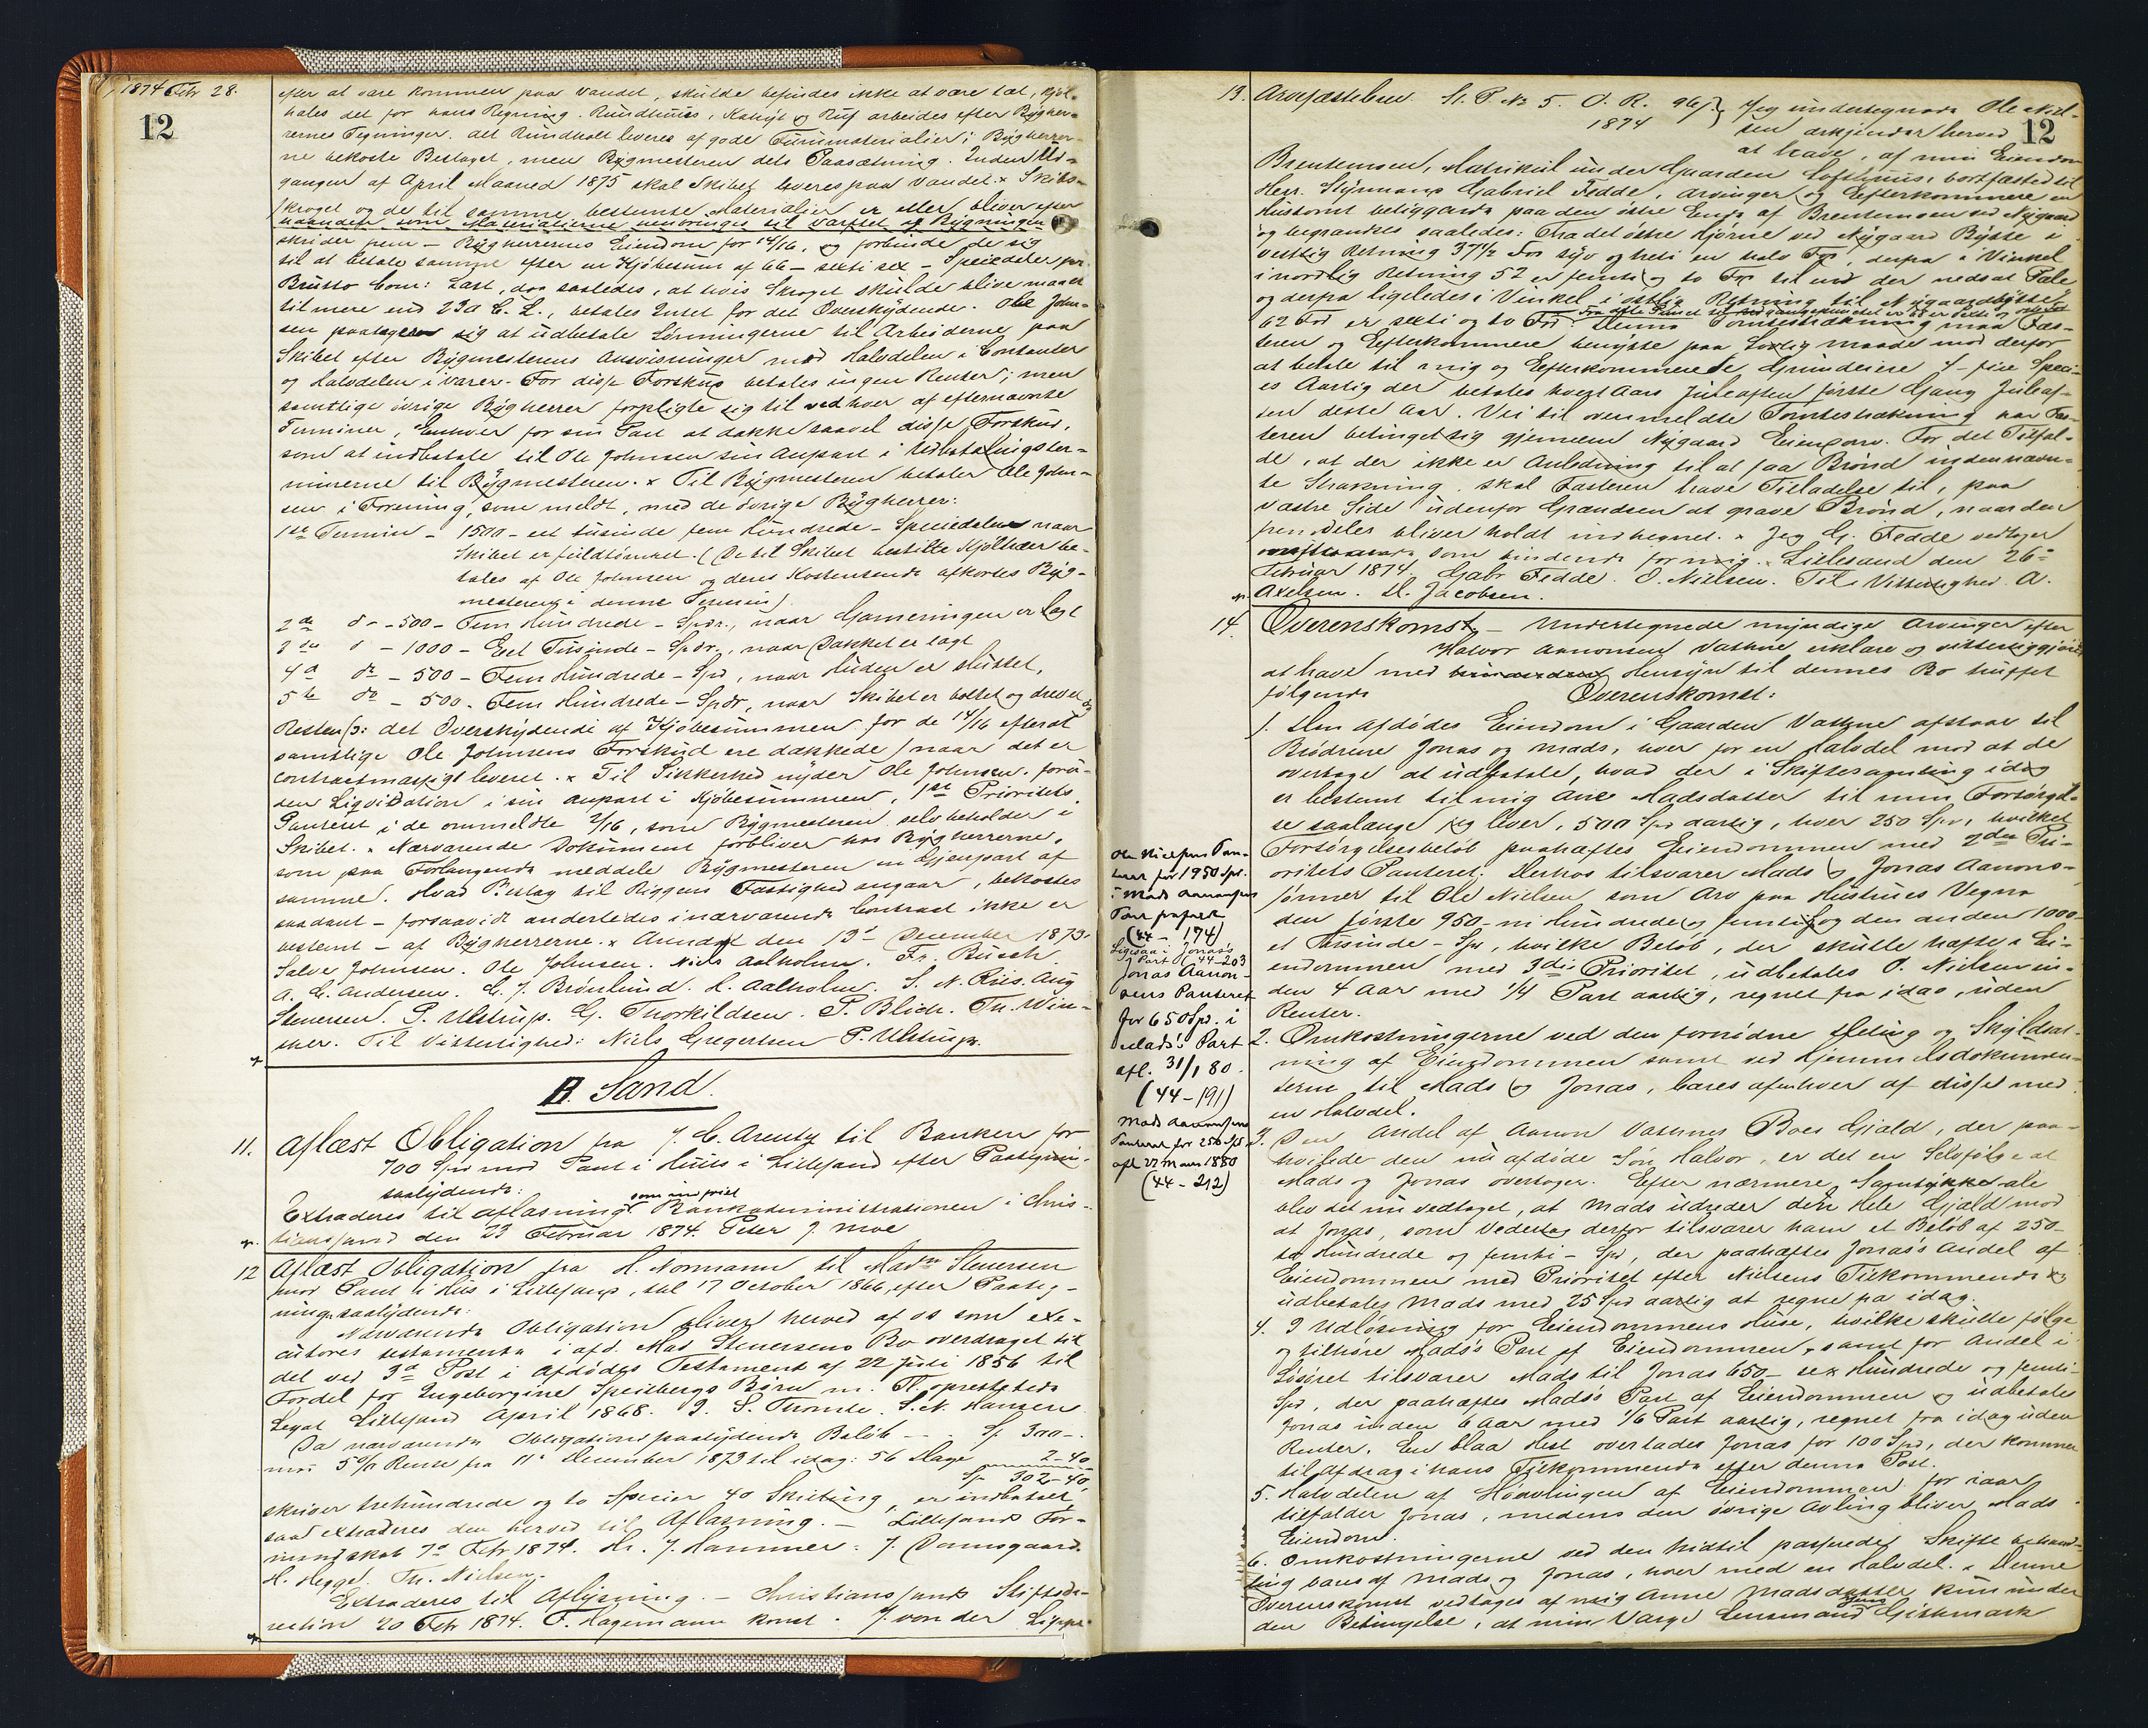 1874 Febr 28.
12
efter at være kommen paa Vandet, skulde befindes ikke at være tæt, kjøl-
hales det for hans Regning. Rundhuus, Kahyt og Ruf arbeides efter Bygher-
rernes Tegninger. det Rundholt leveres af gode Furumaterialier; Bygherrer-
ne bekoste Beslaget, men Bygmesteren dets Paasætning. Inden Ud-
gangen af April Maaned 1875 skal Skibet leveres paa Vandet. Skibs-
kroget og de til samme bestemte Materialier er eller bliver efter
haanden som Materialierne henbringes til Værftet og Bygningen
skrider frem – Bygherrernes Eiendom for 14/16, og forbinde de sig
til at betale samme efter en Kjøbesum af 66 – sexti sex – Speciedaler pr.
Brutto Com: Læst, dog saaledes, at hvis Skroget skulde blive maalt
til mere end 230 C. L., betales Intet for det Overskydende. Ole John-
sen paatager sig at udbetale Lønningerne til Arbeiderne paa
Skibet efter Bygmesterens Anvisninger med Halvdelen i Contanter
og Halvdelen i Varer. For disse Forskud betales ingen Renter; men
samtlige øvrige Bygherrer forpligte sig til ved hver af efternævnte
Terminer, Enhver for sin Part at dække saavel disse Forskud,
som at indbetale til Ole Johnsen sin Anpart i Udbetalingster-
minerne til Bygmesteren. Til Bygmesteren betaler Ole John-
sen i Forening, som meldt, med de øvrige Bygherrer:
1ste Termin – 1500 – eet tusinde fem hundrede – Speciedaler naar
Skibet er fuldtømret. (De til Skibet bestilte Kjøltræer be-
tales af Ole Johnsen og deres Kostensende afkortes Byg-
mesteren i denne Termin)
2den do – 500 – Fem Hundrede – Spdr., naar Garneringen er lagt
3die do – 1000 – Eet Tusinde – Spdr., naar Dækket er lagt
4de do – 500 – Fem Hundrede – Spd, naar Huden er sluttet,
5te do – 500. Fem Hundrede – Spdr, naar Skibet er boltet og drevet og
Resten (ɔ: det Overskydende af Kjøbesummen for de 14/16 efterat
samtlige Ole Johnsens Forskud ere dækkede) naar det er
contractmæssigt leveret. Til Sikkerhed nyder Ole Johnsen, foru-
den Liqvidation i sin Anpart i Kjøbesummen, 1ste Prioritets
Panteret i de ommeldte 2/16, som Bygmesteren selv beholder i
Skibet. Nærværende Dokument forbliver hos Bygherrerne,
som paa Forlangende meddele Bygmesteren en Gjenpart af
samme. Hvad Beslag til Riggens Fastighed angaar, bekostes
saadant – forsaavidt anderledes i nærværende Contract ikke er
bestemt – af Bygherrerne. Arendal den 13de December 1873.
Salve Johnsen. Ole Johnsen. Niels Aalholm. Fr. Busch.
A. C. Andersen. C. J. Brønlund. H. Aalholm. S. N. Riis. Aug
Steuersen. P. Ulstrup. G. Thorkildsen. P. Blich. Th. Win-
ther. Til Vitterlighed: Niels Gregersen P. Ulstrup.
B. Sand.
11. Aflæst Obligation fra J. C. Arentz til Banken for
700 Spd mod Pant i Huus i Lillesand efter Paategning
saalydende:
Extraderes til aflæsning som indfriet Bankadministrationen i Chris-
tianssand den 23 Februar 1874. Peter J. Moe
12 Aflæst Obligation fra H. Normann til Madm Steuersen
mod Pant i Hus i Lillesand, dat 17 October 1866, efter Paateg-
ning saalydende:
Nærværende Obligation bliver herved af os som exe-
cutores testamenti i afd. Mad Steuersens Bo overdraget til
det ved 3de Post i Afdødes Testament af 22 Juli 1856 til
Fordel for Ingeborgine Speilbergs Børn m. Fl. oprettede
Legat Lillesand April 1868. J. S. Thomle. S. N. Hansen
Da nærværende Obligations paalydende Beløb – Sp 300 –.
med 5% Rente fra 11te December 1873 til idag: 56 Dage 2–40
Sp 302–40,
skriver trehundrede og to Specier 40 Skilling, er indbetalt,
saa extraderes den herved til Aflæsning. – Lillesands For-
mandskab 7de Febr 1874. Hr. J. Hammer. J. Damsgaard.
H. Hegge. Th. Nielsen.
Extraderes til Aflysning. – Christianssands Stiftsdi-
rection 20 Febr 1874. F. Hagemann konst. J. von der Lippe.
12
13. Arvefæstebrev St. P. No 5. O. R. 96 ß
1874
Jeg undertegnede Ole Niel-
sen erkjender herved
at have, af min Eiendom
Brentemoen, Matrikul under Gaarden Lofthuus, bortfæstet til
Herr Styrmand Gabriel Fedde, Arvinger og Efterkommere en
Hustomt beliggende paa den østre Enge af Brentemoen ved Nygaard
og begrændset saaledes: Fra det østre Hjørne ved Nygaard Bytte i
vestlig Retning 37½ Fod syv og treti en halv Fod, derfra i Vinkel
i nordlig Retning 52 er femti og to Fod til ved der nedsat Pæle
og derfra ligeledes i Vinkel i østlig Retning til Nygaardbytte
62 Fod er sexti og to Fod Denne Tomtestrækning maa Fæs-
teren og Efterkommere benytte paa Lovlig maade mod derfor
at betale til mig og Efterkommerede Grundeiere 4 – fire Speci-
es Aarlig der betales hvert Aars Juleaften første Gang Juleaf-
ten dette Aar. Vei til ovenmeldte Tomtestrækning har Fæs-
teren betinget sig gjennem Nygaard Eiendom. For det Tilfæl-
de, at der ikke er Anledning til at faa Brønd inden nævn-
te Strækning, skal Fæsteren have Tilladelse til, paa
vestre Side udenfor Grændsen at grave Brønd, naar den
fremdeles bliver holdt indhegnet. Jeg G. Fedde vedtager
som bindende for mig. Lillesand den 26de
Februar 1874. Gabr Fedde. O. Nielsen. Til Vitterlighed. A.
Axelsen. H. Jacobsen.
14. Overenskomst – Undertegnede myndige Arvinger efter
Halvor Aanonsen Vathne erklære og vitterliggjøre
at have med Hensyn til dennes Bo truffet
følgende Overenskomst:
1. Den afdødes Eiendom i Gaarden Vathne afstaar til
Brødrene Jonas og Mads, hver for en Halvdel mod at de
overtage at udbetale, hvad der i Skiftesamling idag
er bestemt til mig Ane Madsdatter til min Forsørgel-
se saalænge jeg lever, 500 Spd aarlig, hver 250 Spd, hvilket
Forsørgelsesbeløb paahæftes Eiendommen med 2den Pri-
oritets Panteret; Derhos tilsvarer Mads og Jonas Aanons-
sønner til Ole Nielsen som Arv paa Hustrues Vegne
den første 950 – ni Hundrede og femti og den anden 1000 –
et Tusinde – Spd, hvilke Beløb, der skulle hæfte i Ei-
endommen med 3die Prioritet, udbetales O. Nielsen in-
den 4 Aar med 1/4 Part aarlig, regnet fra idag, uden
Renter.
2. Omkostningerne ved den fornødne Deling og Skyldsæt-
ning af Eiendommen samt ved Hjemmelsdokumen-
terne til Mads og Jonas, bæres af enhver af disse med
en Halvdel.
3. Den Andel af Aanon Vathnes Boes Gjæld, der paa-
hvilede den nu afdøde Søn Halvor, er det en Selvfølge at
Mads og Jonas overtager. Efter nærmere Samtykke ale
blev det nu vedtaget, at Mads udreder den Hele Gjæld mod
at Jonas, som Vederlag derfor tilsvarer ham et Beløb af 250
to Hundrede og femti – Spd, der paahæftes Jonas's Andel af
Eiendommen med Prioritet efter Nielsens Tilkommende og
udbetales Mads med 25 Spd aarlig at regne fra idag.
4. I Udløsning for Eiendommens Huse, hvilke skulle følge
og tilhøre Mads's Part af Eiendommen, samt for Andel i
Løsøret tilsvarer Mads til Jonas 650 – sex Hundrede og femti
Spd, der paahæftes Mads's Part af Eiendommen og udbetales
Jonas inden 6 Aar med 1/6 Part aarlig, regnet fra idag uden
Renter. En blaa Hest overlades Jonas for 100 Spd, der kommer
til Afdrag i hans Tilkommende efter denne Post.
5. Halvdelen af Høavlingen af Eiendommen for iaar
tilfalder Jonas, medens den øvrige Avling bliver Mads
Eiendom.
6. Omkostningerne ved den hidtil passerede Skifte behand-
ling bæres af Mads og Jonas, hver med en Halvdel. Denne
Overenskomst vedtages af mig Anne Madsdatter kun under
den Betingelse, at min Værge Lensmand Jens Gistmark
Ole Nielsens Pan-
teret for 1950 Spd.
i Mads Aanonsens
Part
(44 – 174)
Ligesaa i Jonas's
Part (44–203
Jonas Aanon-
sens Panteret
for 650 Spd. i
Mads's Part
afl. 31/1 80.
(44–191)
Mads Aanonsens
Panteret for 250 Spd
afl 22 Mars 1880
(44–212)